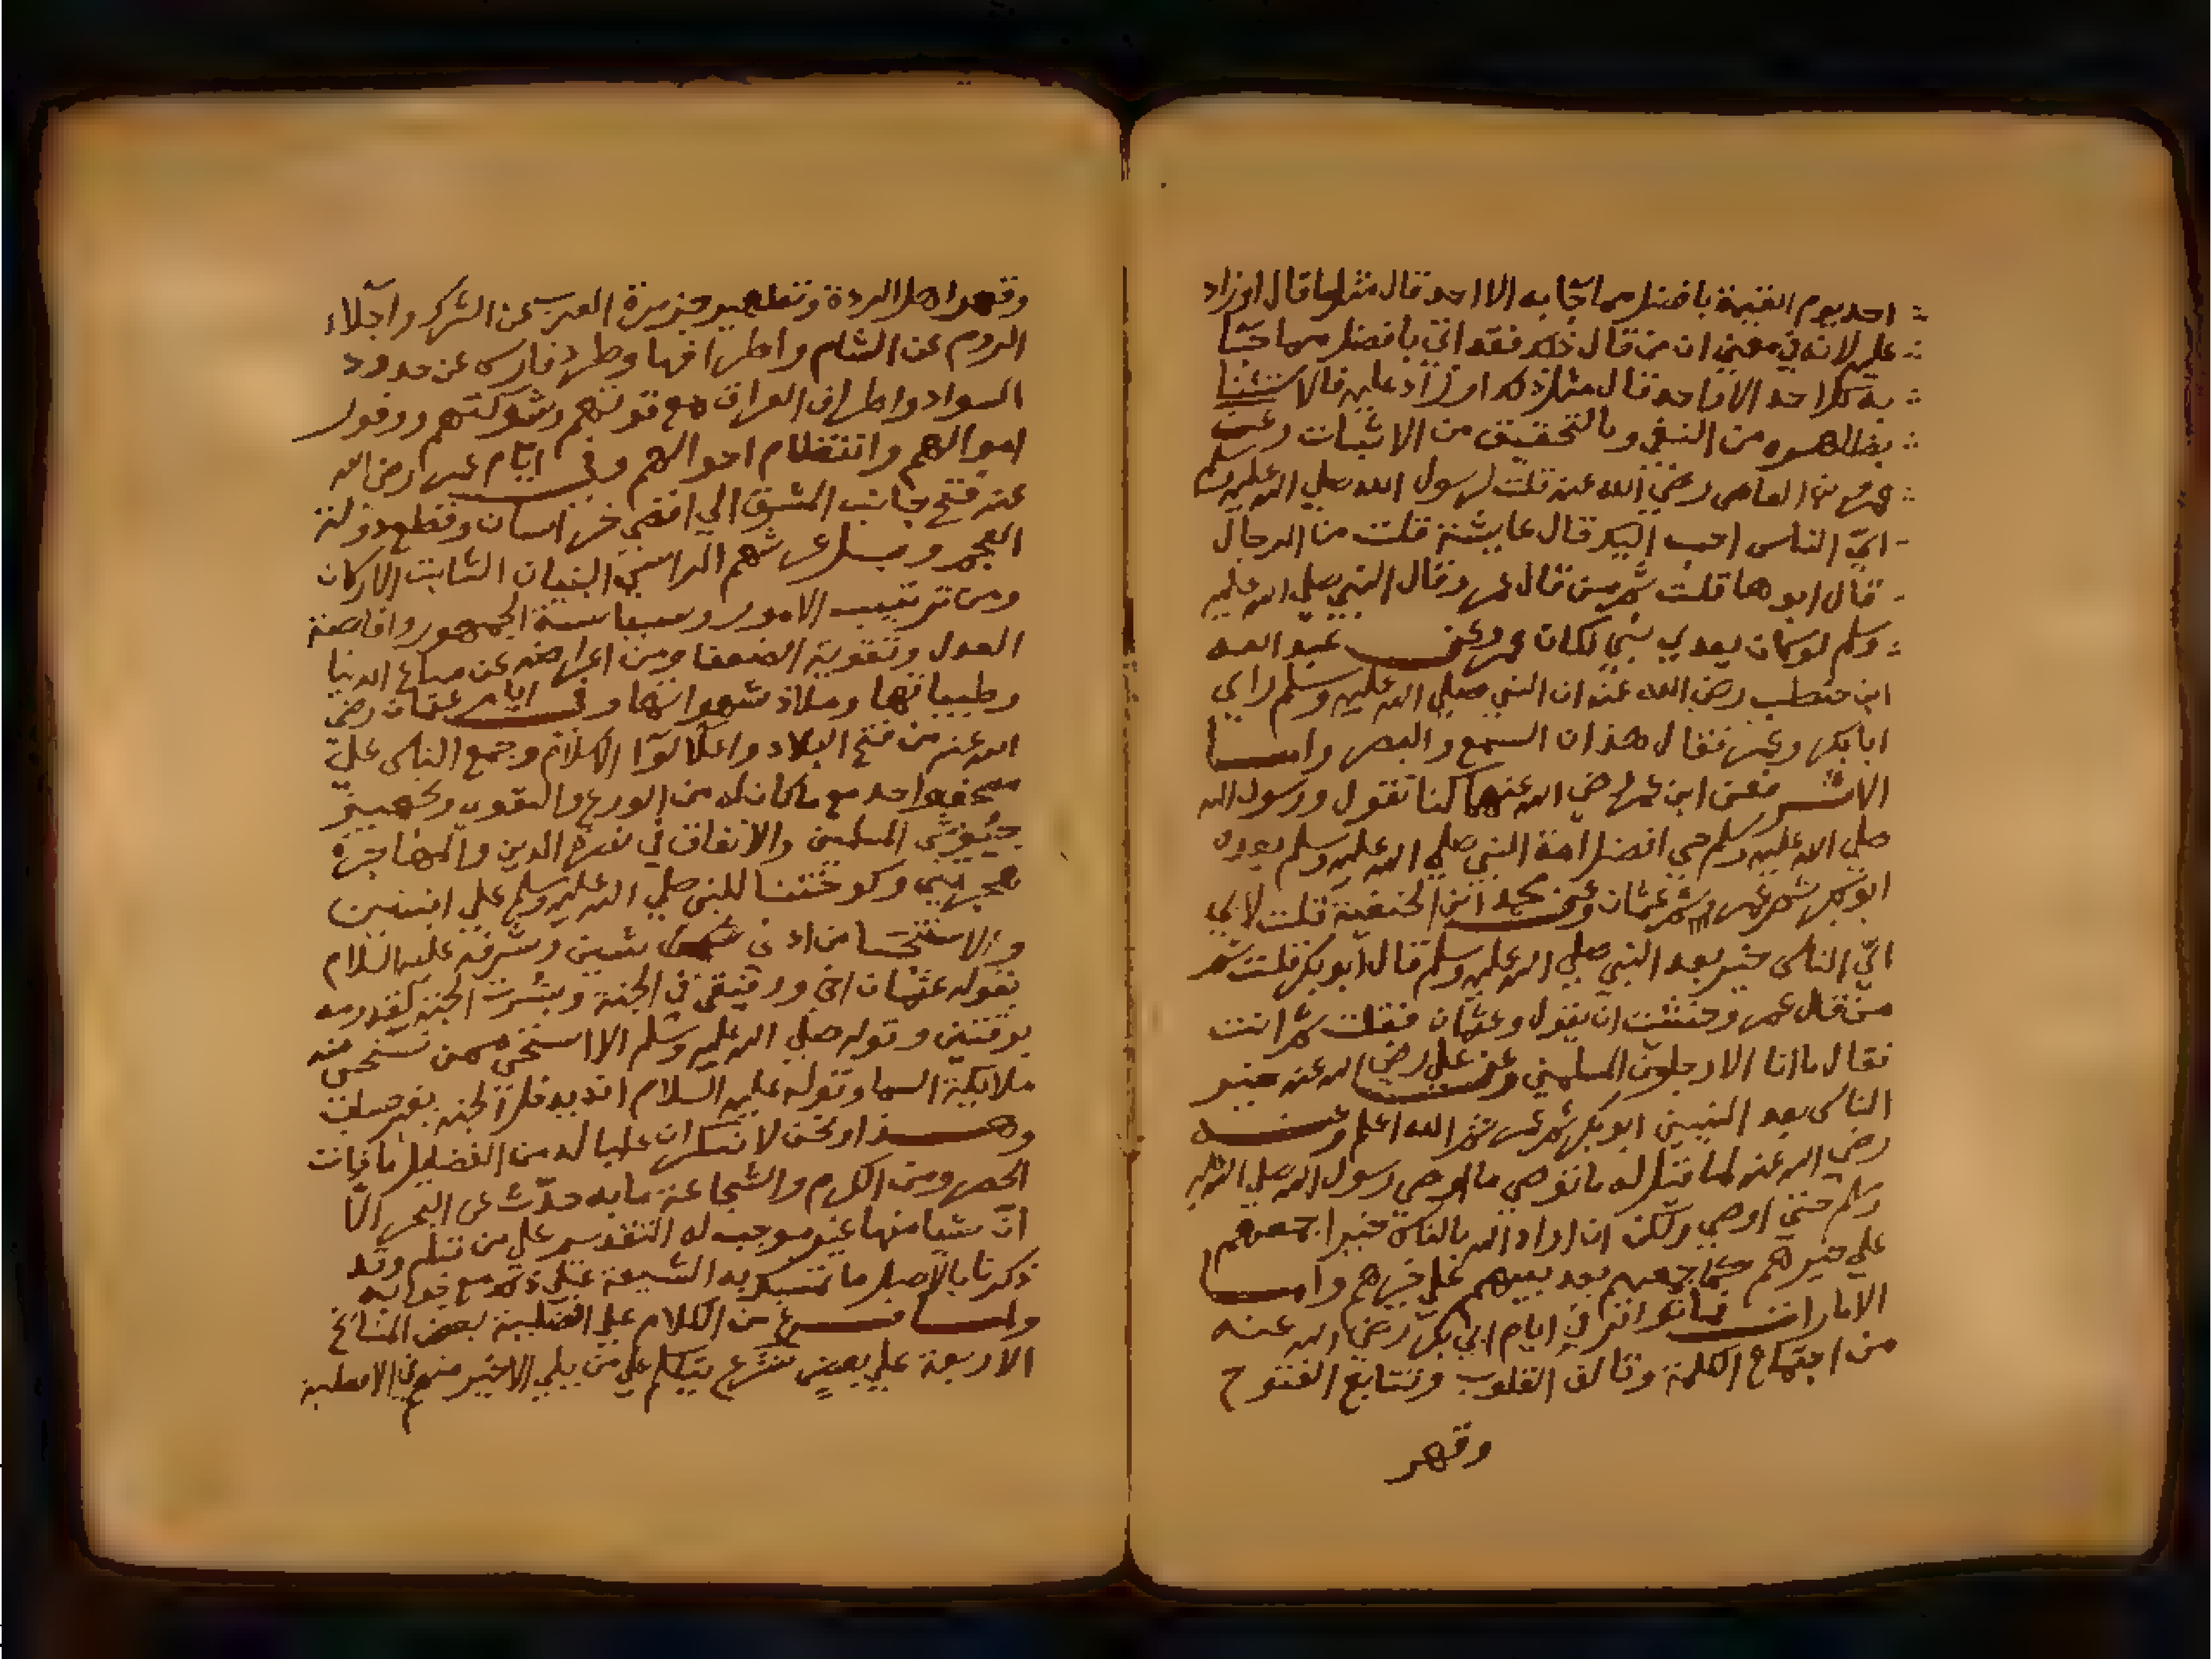 احد يوم القيمة بافضل مما جا به الا احد قال مثل ما قال او زاد
عليه لانه في معني ان من قال ذلك فقد اتي بافضل مما جا
به كل احد الا احد قال مثل ذلك او زاد عليه فالاستثنا
بظاهره من النفي وبالتحقيق من الاثبات وعن
عمرو بن العاص رضي الله عنه قلت لرسول الله صلي الله عليه وسلم
اي الناس احب اليك قال عايشة قلت من الرجال
قال ابوها قلت ثم من قال عمر وقال النبي صلي الله عليه
وسلم لو كان بعدي نبي لكان عمر وعن عبد الله
ابن حنطب رضي الله عنه ان النبي صلي الله عليه وسلم راي
ابا بكر وعمر فقال هذان السمع والبصر واما
الاثر فعن ابن عمر رضي الله عنهما كنا نقول ورسول الله
صلي الله عليه وسلم حي افضل امة النبي صلي الله عليه وسلم بعده
ابو بكر ثم عمر ثم عثمان وعن محمد ابن الحنفية قلت لابي
اي الناس خير بعد النبي صلي الله عليه وسلم قال ابو بكر قلت ثم
من قال عمر وخشيت ان يقول وعثمان فقلت ثم انت
فقال ما انا الا رجل من المسلمين وعن علي رضي الله عنه خير
الناس بعد النبيين ابو بكر ثم عمر ثم الله اعلم وعنه
رضي الله عنه لما قيل له ما توصي ما اوصي رسول الله صلي الله عليه
وسلم حتي اوصي ولكن ان اراد الله بالناس خيرا جمعهم
علي خيرهم كما جمعهم بعد نبيهم علي خيرهم واما
الامارات فما تواتر في ايام ابي بكر رضي الله عنه
من اجتماع الكلمة وتالف القلوب وتتابع الفتوح
وقهر
وقهر اهل الردة وتطهير جزيرة العرب عن الشرك واجلاء
الروم عن الشام واطرافها وطرد فارس عن حدود
السواد واطراف العراق مع قوتهم وشوكتهم ووفور
اموالهم وانتظام احوالهم وفي ايام عمر رضي الله
عنه فتح جانب المشرق الي اقصي خراسان وقطع دولة
العجم عرشهم الراسي البنيان الثابت الاركان
ومن ترتيب الامور وسياسة الجمهور وافاضة
العدل وتقوية الضعفا ومن اعراضه عن متاع الدنيا
وطيباتها وملاذ شهواتها وفي ايام عثمان رضي
الله عنه من فتح البلاد واعلا لوا الاسلام وجمع الناس علي
مصحف واحد مع ما كان له من الورع والتقوي وتجهيز
جيوش المسلمين والانفاق في نصرة الدين والمهاجرة
هجرتين وكونه ختنا للنبي صلي الله عليه وسلم علي ابنتين
والاستحيا من ادني شين وشرفه عليه السلام
بقوله عثمان اخي ورفيقي في الجنة
وقوله صلي الله عليه وسلم الا استحي ممن تستحي منه
ملايكة السما وقوله عليه السلام انه يدخل الجنة بغير حساب
وهذا ونحن لا ننكر ان عليا له من الفضايل ما فات
الحصر ومن الكرم والشجاعة ما به حدث عن البحر الا
ان شيا منها غير موجب له التقديم علي من قبله وقد
ذكرنا بالاصل ما تمسك به الشيعة علي ذلك مع جوابه
ولما فرغ من الكلام علي افضلية بعض المشايخ
الاربعة علي بعض شرع يتكلم علي من يلي الاخير منهم في الافضلية